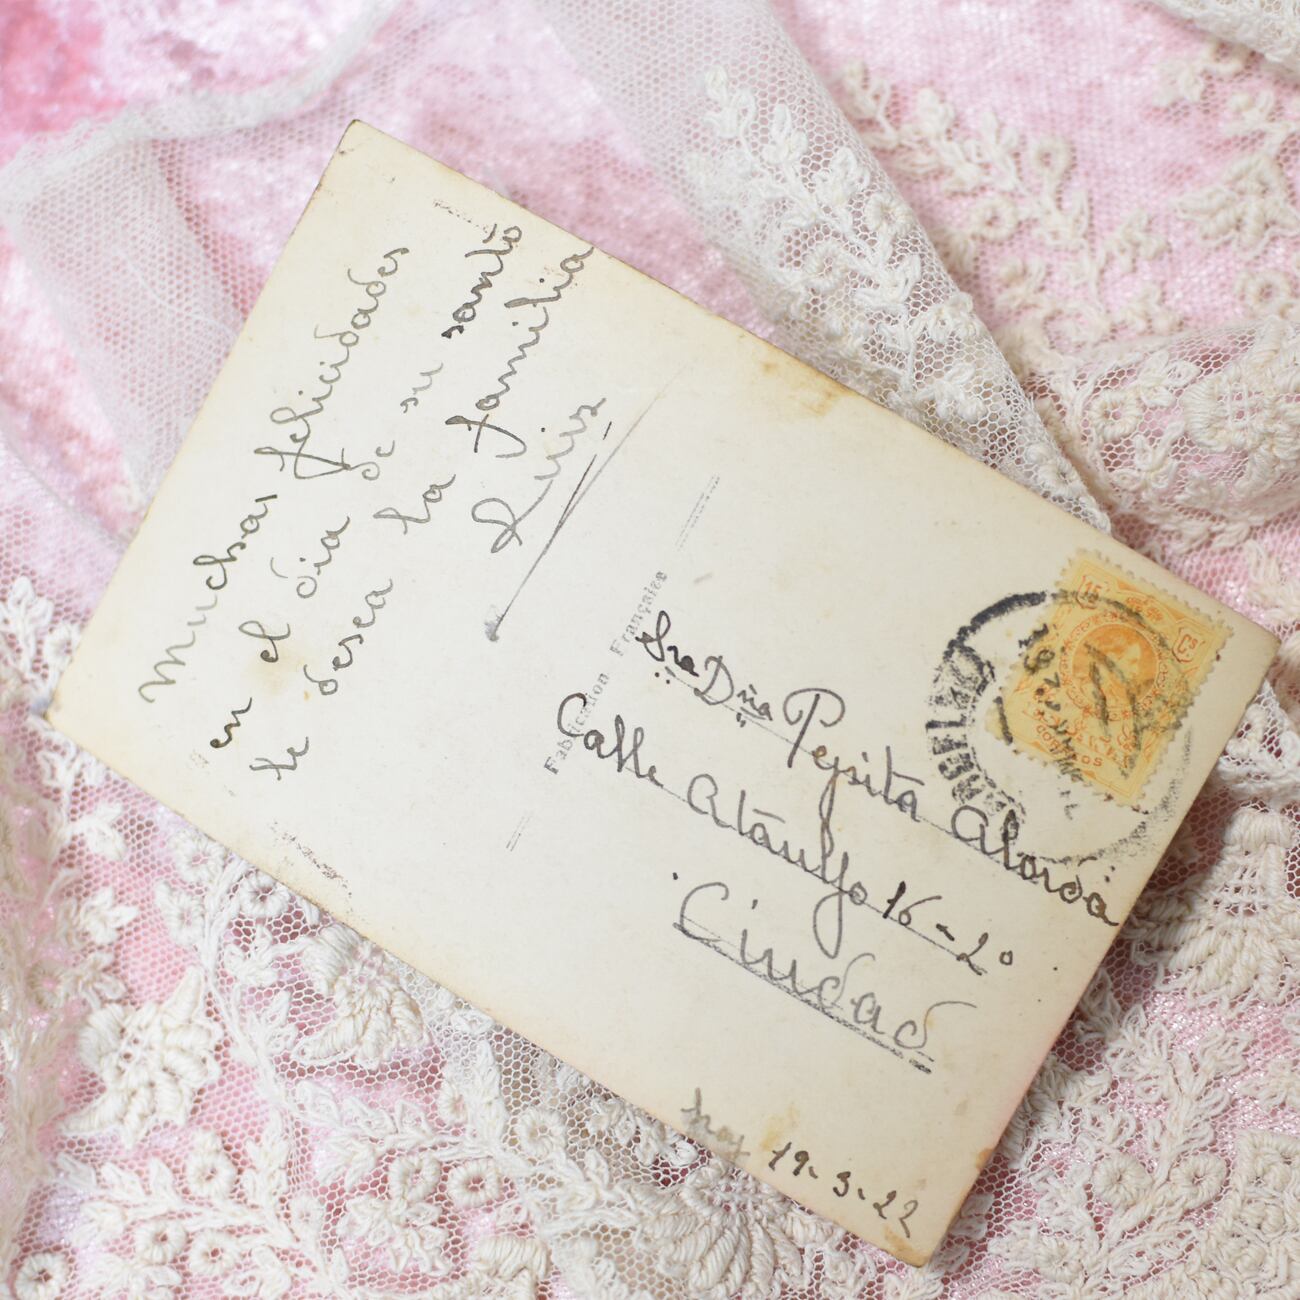 Muchas felicidades
en el dia de su santo
te desea la familia
Ruiz
Fabrication Française
Sra Dña Pepita Alorda
Calle Ataulfo 16-2º
Ciudad
hoy 19-3-22
15 Cs